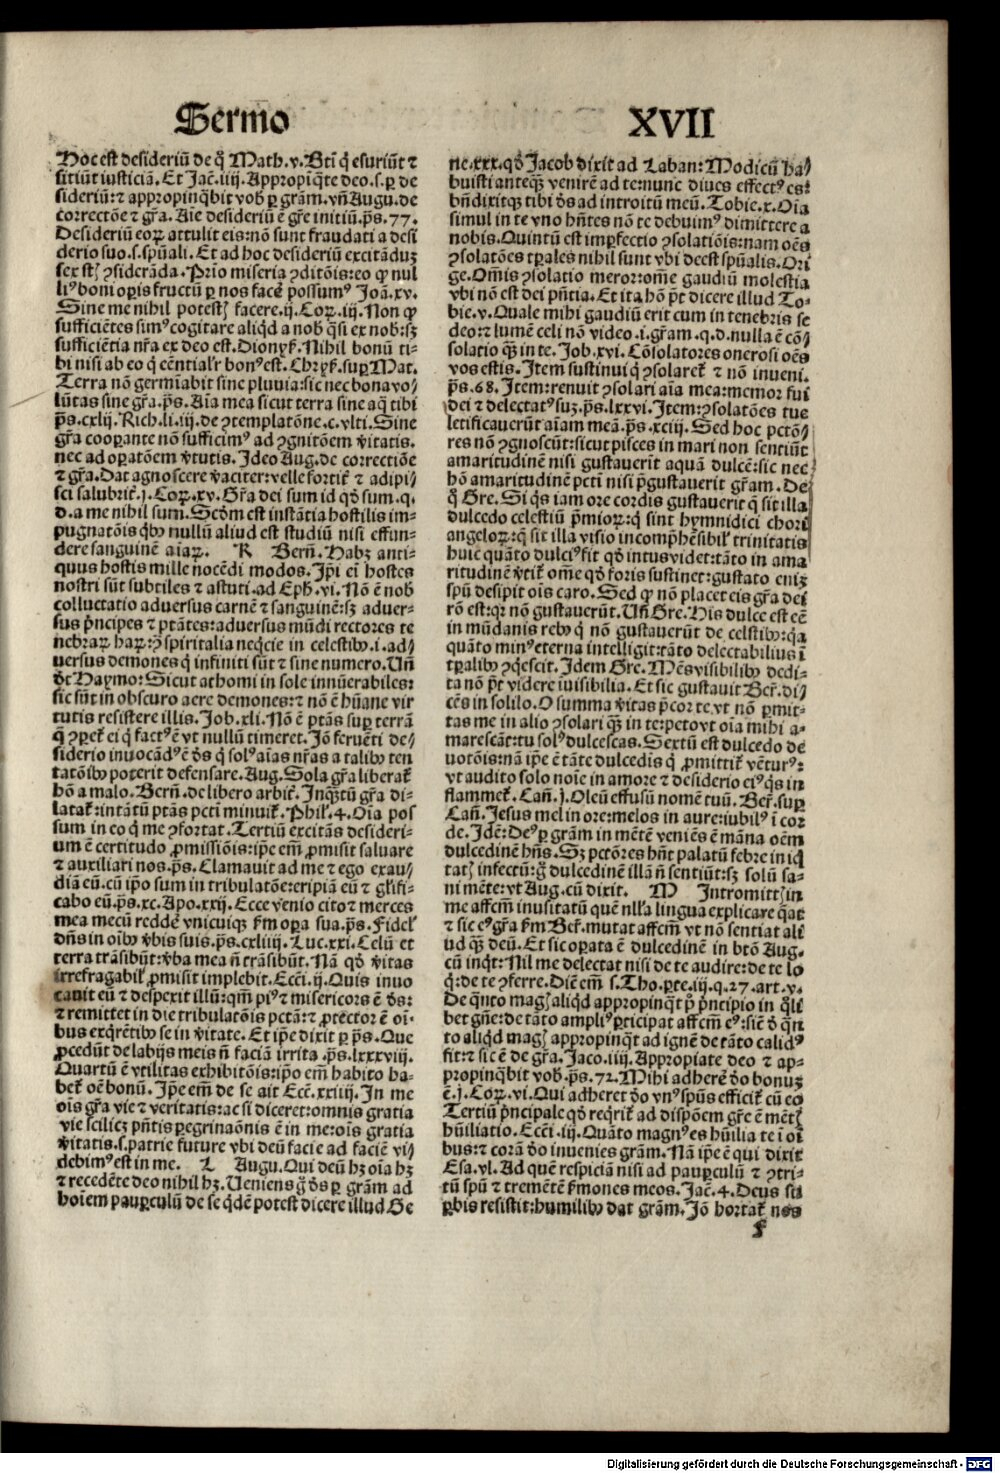 Sermo XVII
Hoc est desideriū de q̄ Math.v. Bti q̄ esuriūt ⁊
sitiūt iusticiā. Et Jac̄.iiij. Appropīq̄te deo.s.ꝑ de
sideriū:⁊ appropinq̄bit vob̄ ꝑ grām.vn̄ Augu.de
correctōe ⁊ gr̄a. Aīe desideriū ē gr̄e initiū.p̄s.77.
Desideriū eoꝝ attulit eis:nō sunt fraudati a desi
derio suo.s.spūali. Et ad hoc desideriū excitāduꝫ
sex st̄ ꝯsiderāda. Prīo miseria ꝯditōis:eo ꝙ nul
liꝰ boni oꝑis fructū ꝑ nos facē possumꝰ Joā.xv.
Sine me nihil potestꝭ facere.ij.Coꝝ.iij. Non ꝙ
sufficiētes simꝰ cogitare aliq̄d a nob̄ q̄si ex nob̄:sꝫ
sufficiētia nr̄a ex deo est. Dionyẜ. Nihil bonū ti⸗
bi nisi ab eo q̄ cēntialr̄ bonꝰ est. Chrẏẜ.suꝑ Mat.
Terra nō germīabit sine pluuia:sic nec bona vo/
lūtas sine gr̄a.p̄s. Aīa mea sicut terra sine aq̄ tibi
p̄s.cxlij. Rich.li.iij.de ꝯtemplatōne.c.vlti. Sine
gr̄a cooꝑante nō sufficimꝰ ad ꝯgnitōem v̄itatis.
nec ad oꝑatōem v̄tutis. Ideo Aug.de correctiōe
⁊ gr̄a. Dat agnoscere v̄aciter:velle fortiẜ ⁊ adipi/
sci salubriẜ.j.Coꝝ.xv. Gr̄a dei sum id qd̄ sum.q.
d.a me nihil sum. Scd̄m est instātia hostilis im⸗
pugnatōis qb̄ꝰ nullū aliud est studiū nisi effun⸗
dere sanguinē aīaꝝ. R Bern̄. Habꝫ anti⸗
quus hostis mille nocēdi modos. Ip̄i ei̅ hostes
nostri sūt subtiles ⁊ astuti.ad Eph̄.vi. Nō ē nob̄
colluctatio aduersus carnē ⁊ sanguinē:sꝫ aduer⸗
sus p̄ncipes ⁊ ptātes:aduersus mūdi rectores te
nebraꝝ haꝝ:ꝯ̄ spiritalia neq̄cie in celestibꝰ.i.ad/
uersus demones q̄ infiniti sūt ⁊ sine numero. Un̄
dr̄ Haymo: Sicut athomi in sole innūerabiles:
sic sūt in obscuro aere demones:⁊ nō ē hūane vir
tutis resistere illis. Job.xli. Nō ē ptās suꝑ terrā
q̄ ꝯꝑeẜ ei q̄ factꝰ ē vt nullū timeret. Jō feruēti de/
siderio inuocādꝰ ē dn̄s q̄ solꝰ aīas nr̄as a talibꝰ ten
tatōibꝰ poterit defensare. Aug. Sola gr̄a liberat
hō a malo. Bern̄.de libero arbiẜ. Inq̄ꝫtū gr̄a di⸗
lataẜ:intātū ptās pcti minuiẜ. Phil̄.4. Oīa pos
sum in eo q̄ me ꝯfortat. Tertiū excitās desideri⸗
um ē certitudo ꝓmissiōis:ip̄e em̄ ꝓmisit saluare
⁊ auxiliari nos.p̄s. Clamauit ad me ⁊ ego exau/
diā eū.cū ip̄o sum in tribulatōe:eripiā eū ⁊ gl̄ifi⸗
cabo eū.p̄s.xc. Apo.xxij. Ecce venio cito ⁊ merces
mea mecū reddē vnicuiqꝫ ẜm oꝑa sua.p̄s. Fidel̄
dn̄s in oībꝰ v̄bis suis.p̄s.cxliiij. Luc.xxi. Celū et
terra trāsibūt:v̄ba mea n̄ trāsibūt. Nā qd̄ v̄itas
irrefragabil̄ ꝓmisit implebit. Ecci̅.ij. Quis inuo
cauit eū ⁊ despexit illū:qm̄ piꝰ ⁊ misericors ē dn̄s:
⁊ remittet in die tribulatōis pctā:⁊ ꝓtector ē oī⸗
bus exq̄rētibꝰ se in v̄itate. Et ip̄e dixit ꝑ p̄s. Que
ꝓcedūt de labijs meis n̄ faciā irrita.p̄s.lxxxviij.
Quartū ē vtilitas exhibitōis:ip̄o em̄ habito ha⸗
beẜ oē bonū. Ip̄e em̄ de se ait Ecc̄.xxiiij. In me
oīs gr̄a vie ⁊ veritatis:ac si diceret:omnis gratia
vie scilicꝫ pn̄tis peregrinaōnis ē in me:oīs gratia
v̄itatis.s.patrie future vbi deū facie ad faciē vi/
debimꝰ est in me. L Augu. Qui deū hꝫ oīa hꝫ
⁊ recedēte deo nihil hꝫ. Ueniens g̊ dn̄s ꝑ grām ad
hoīem pauꝑculū de se q̄dē potest dicere illud Ge
ne.xxx.qd̄ Jacob dixit ad Laban: Modicū ha/
buisti anteqꝫ venirē ad te:nunc diues effectꝰ es:
bn̄dixitqꝫ tibi dn̄s ad introitū meū. Tobie.x. Oīa
simul in te vno hn̄tes nō te debuimꝰ dimittere a
nobis. Quintū est imꝑfectio ꝯsolatiōis:nam oēs
ꝯsolatōes tꝑales nihil sunt vbi deest spūalis. Ori
ge. Om̄is ꝯsolatio meror:ome̅ gaudiū molestia
vbi nō est dei pn̄tia. Et ita hō pt̄ dicere illud To⸗
bie.v. Quale mihi gaudiū erit cum in tenebris se
deo:⁊ lumē celi nō video.i.grām.q.d.nulla ē cō/
solatio qꝫ in te. Job.xvi. Cōsolatores onerosi oēs
vos estis. Item sustinui q̄ ꝯsolareẜ ⁊ nō inueni.
p̄s.68. Item:renuit ꝯsolari aīa mea:memor fui
dei ⁊ delectatꝰ suꝫ.p̄s.lxxvi. Item:ꝯsolatōes tue
letificauerūt aīam meā.p̄s.xciij. Sed hoc pctō/
res nō ꝯgnoscūt:sicut pisces in mari non sentiūt
amaritudinē nisi gustauerīt aquā dulcē:sic nec
hō amaritudinē pcti nisi p̄gustauerit grām. De
q̄ Gre. Si q̄s iam ore cordis gustauerit q̄ sit illa
dulcedo celestiū p̄mioꝝ:q̄ sint hymnidici chori
angeloꝝ:q̄ sit illa visio incomp̄hēsibil̄ trinitatis
huic quāto dulciꝰ fit qd̄ intus videt:tāto in ama
ritudinē v̄tiẜ ome̅ qd̄ foris sustinet:gustato eniꝫ
spū desipit oīs caro. Sed ꝙ nō placet eis gr̄a dei
rō est:qꝛ nō gustauerūt. Un̄ Gre. His dulce est eē
in mūdanis rebꝰ q̄ nō gustauerūt de celstibꝰ:q̄a
quāto minꝰ eterna intelligit:tāto delectabilius ī
tꝑalibꝰ ꝯq̄escit. Idem Gre. Mēs visibilibꝰ dedi⸗
ta nō pt̄ videre īuisibilia. Et sic gustauit Ber̄.di/
cēs in solilo. O summa v̄itas p̄cor te.vt nō ꝑmit⸗
tas me in alio ꝯsolari qꝫ in te:peto vt oīa mihi a⸗
marescāt:tu solꝰ dulcescas. Sextū est dulcedo de
uotōis:nā ip̄e ē tāte dulcedis q̄ ꝓmittiẜ vēturꝰ:
vt audito solo noīe in amore ⁊ desiderio eiꝰ q̄s in
flammeẜ. Can̄.j. Oleū effusū nomē tuū. Ber̄.suꝑ
Can̄. Jesus mel in ore:melos in aure:iubilꝰ ī cor
de. Idē: Deꝰ ꝑ grām in mētē veniēs ē māna oēm
dulcedinē hn̄s. Sꝫ pctōres hn̄t palatū febre iniq̄
tatꝭ infectū:g̊ dulcedinē illā n̄ sentiūt:sꝫ solū sa⸗
ni mēte:vt Aug.cū dixit. M Intromittꝭ in
me affc̄m inusitatū quē nll̄a lingua explicare q̄at
⁊ sic eꝰ gr̄a ẜm Ber̄.mutat affc̄m vt nō sentiat ali
ud qꝫ deū. Et sic oꝑata ē dulcedinē in btō Aug.
cū inq̄t: Nil me delectat nisi de te audire:de te lo
q̄:de te ꝯferre. Diē em̄ s.Tho.ꝑte.iij.q.27.art.v.
De q̄nto magꝭ aliq̄d appropinq̄t pͥ p̄ncipio in q̄li
bet gn̄e:de tāto ampliꝰ ꝑticipat affc̄m eꝰ:sicͣ dꝰ q̄n
to aliq̄d magꝭ appropinq̄t ad ignē de tāto calidꝰ
fit:⁊ sic ē de gr̄a. Jaco.iiij. Appropiate deo ⁊ ap⸗
propinq̄bit vob̄.p̄s.72. Mihi adherē deo bonuꝫ
ē.j.Coꝝ.vi. Qui adheret deo vnꝰ spūs efficiẜ cū eo
Tertiū p̄ncipale qd̄ req̄riẜ ad dispōem gr̄e ē mētꝭ
hūiliatio. Ecci̅.iij. Quāto magnꝰ es hūilia te ī oī
bus:⁊ corā deo inuenies grām. Nā ip̄e ē qui dixit
Esa.vl. Ad quē respiciā nisi ad pauꝑculū ⁊ ꝯtri⸗
tū spū ⁊ tremētē ẜmones meos. Jac̄.4. Deus su
ꝑbis resistit:humilibꝰ dat grām. Jō hortaẜ nos
f
Digitalisierung gefördert durch die Deutsche Forschungsgemeinschaft - DFG